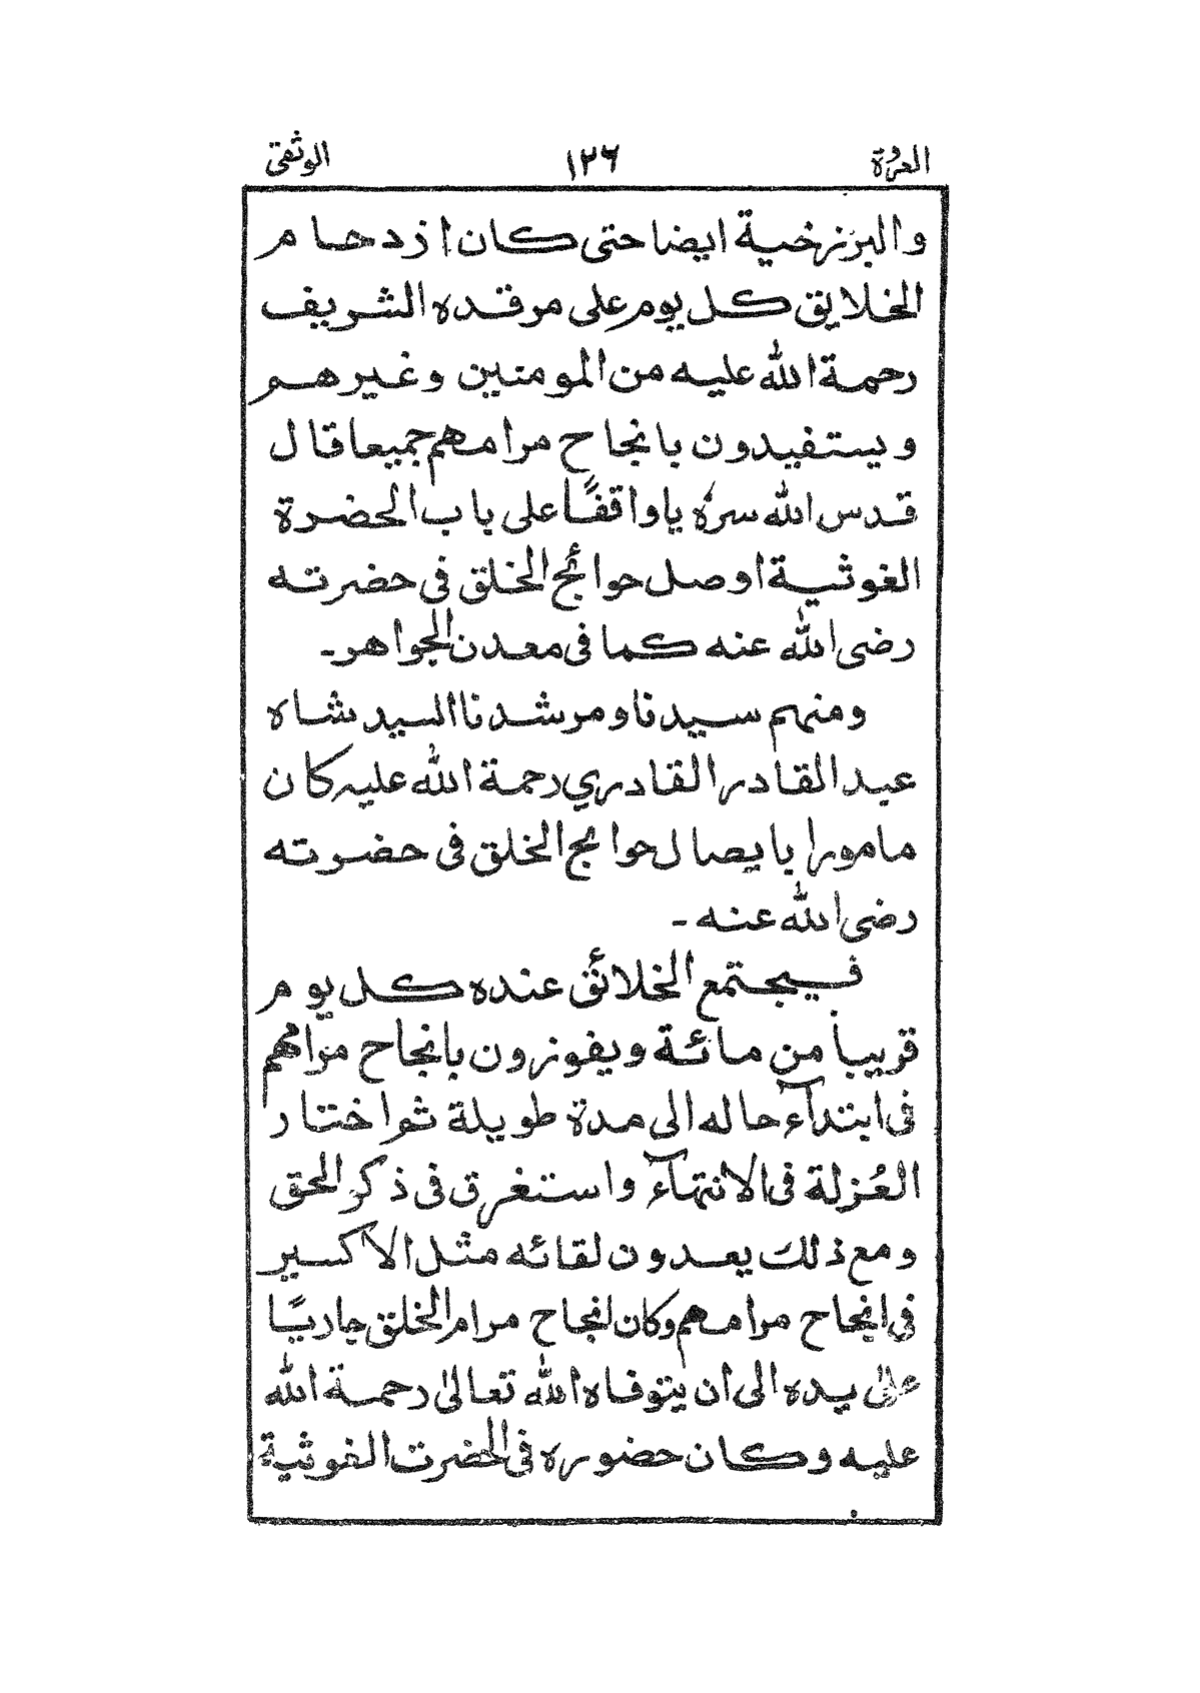 العروة ١٢٦ الوثقى
والبرزخية ايضا حتى كان ازدحام
الخلايق كل يوم على مرقده الشريف
رحمة الله عليه من المومنين وغيرهم
ويستفيدون بانجاح مرامهم جميعا قال
قدس الله سره ياواقفًا على باب الحضرة
الغوثية اوصل حوائج الخلق فى حضرته
رضى الله عنه كما فى معدن الجواهر۔
ومنهم سيدنا ومرشدنا السيد شاه
عبد القادر القادري رحمة الله عليه كان
مامورا بايصال حوايج الخلق فى حضرته
رضى الله عنه ۔
فيجتمع الخلائق عنده كل يوم
قريبا من مائة ويفوزون بانجاح مرامهم
فى ابتدآء حاله الى مدة طويلة ثم اختار
العُزلة فى الانتهآء واستغرق فى ذكر الحق
ومع ذلك يعدون لقائه مثل الاكسير
فى انجاح مرامهم وكان انجاح مرام الخلق جاريًا
على يده الى ان يتوفاه الله تعالىٰ رحمة الله
عليه وكان حضوره فى الحضرت الغوثية